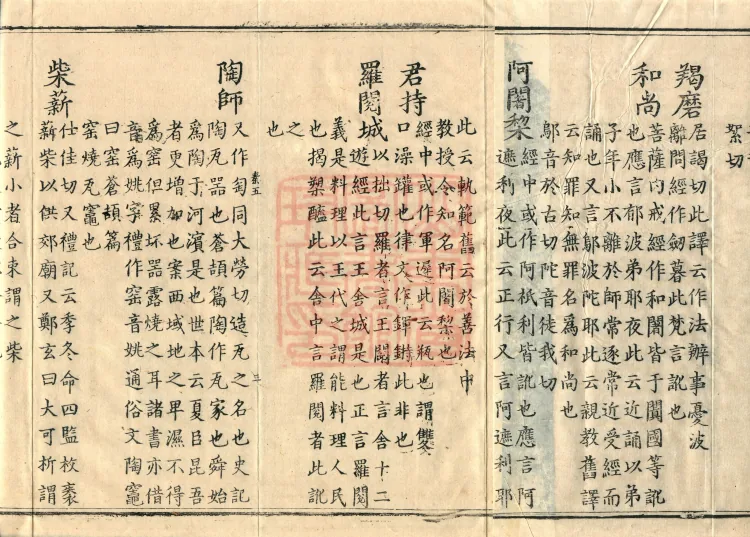 絮切
羯磨居謁切此譯云作法辦事憂波
離問經作劒暮此梵言訛也
和尚菩薩內戒經作和闍皆于闐國等訛
也應言郁波弟耶夜此云近誦以弟
子年小不離於師常逐常近受經而
誦也又言鄔波陀耶此云親教舊譯
云知罪知無罪名為和尚也
鄔音於古切陀音徒我切
阿闍棃經中或作阿祇利皆訛也應言阿
遮利夜此云正行又言阿遮利耶
此云軌範舊云於善法中
教授令知名阿闍棃也
君持經中或作軍遲此云瓶也謂雙
口澡鑵也律文作鍕此非也
羅閱城以拙切羅者言王閱者言舍十二
遊經此言王舍城是也正言羅閱
義是料理以王代之謂能料理人民
也揭塑醯此云舍中言羅閱者此訛
之
也
三
陶師又作匋同大勞切造瓦之名也史記
陶瓦器也蒼頡篇陶作瓦家也舜始
為陶于河濱是也世本云夏臣昆吾
者更增加也案西域地之卑濕不得
為窑但累坏器露燒之耳諸書亦借
音為姚字禮作窑音姚通俗文陶竈
曰窑蒼頡篇
窑燒瓦竈也
柴薪仕佳切又禮記云季冬命四監枚
薪柴以供郊廟又鄭玄曰大可折謂
之薪小者合束謂之柴